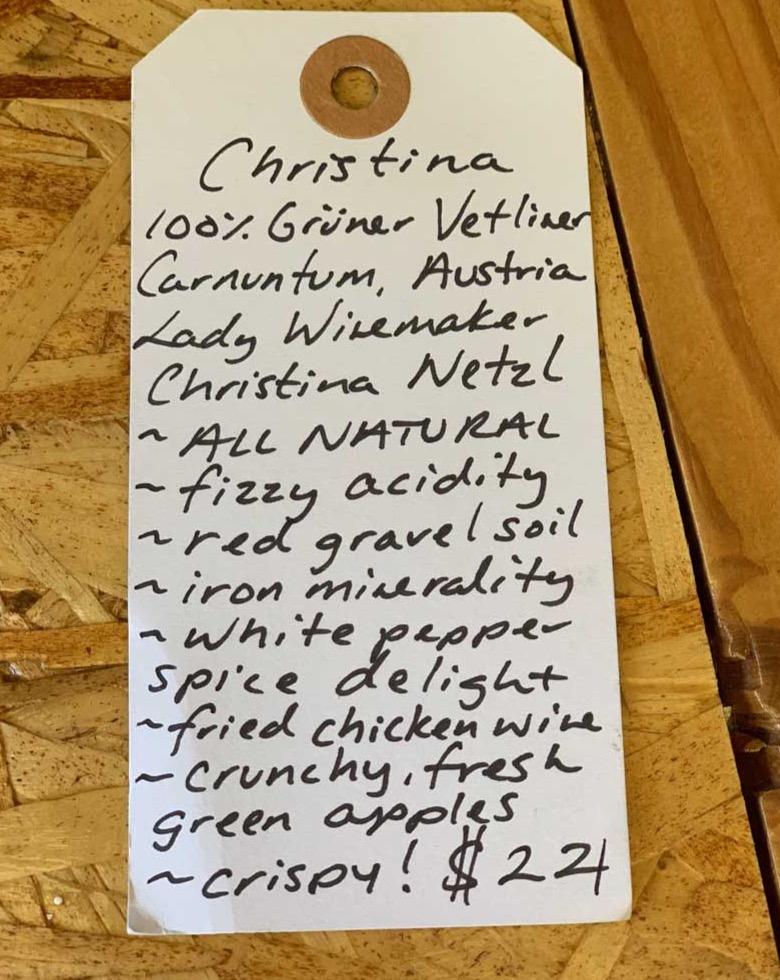 Christina
100% Grüner Vetliner
Carnuntum, Austria
Lady Winemaker
Christina Netzl
~ ALL NATURAL
~ fizzy acidity
~ red gravel soil
~ iron minerality
~ white pepper
spice delight
~ fried chicken wine
~ crunchy, fresh
green apples
~ crispy! $24